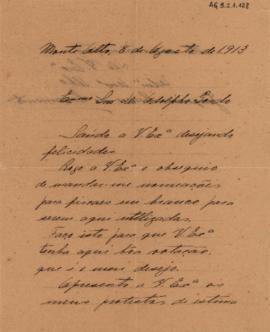 AG 5.2.1.128
Monte Alto, 8 de Agosto de 1913
Exmo Snr Dr Adolpho Gordo
Saúdo a V. Exª desejando
felicidades.
Rogo a V. Exª o obsequio
de mandar-me nomeações
para fiscaes em branco para
serem aqui utilizadas.
Faço isto para que V. Exª
tenha aqui boa votação,
que é o meu desejo.
Apresento a V. Exª os
meus protestos de estima